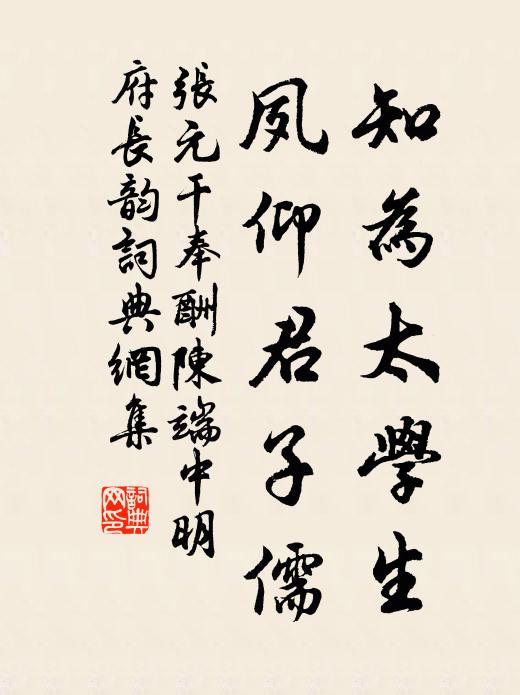 知為太學生
夙仰君子儒
張元干奉酬陳端中明
府長韵詞典網集
詞典
网印